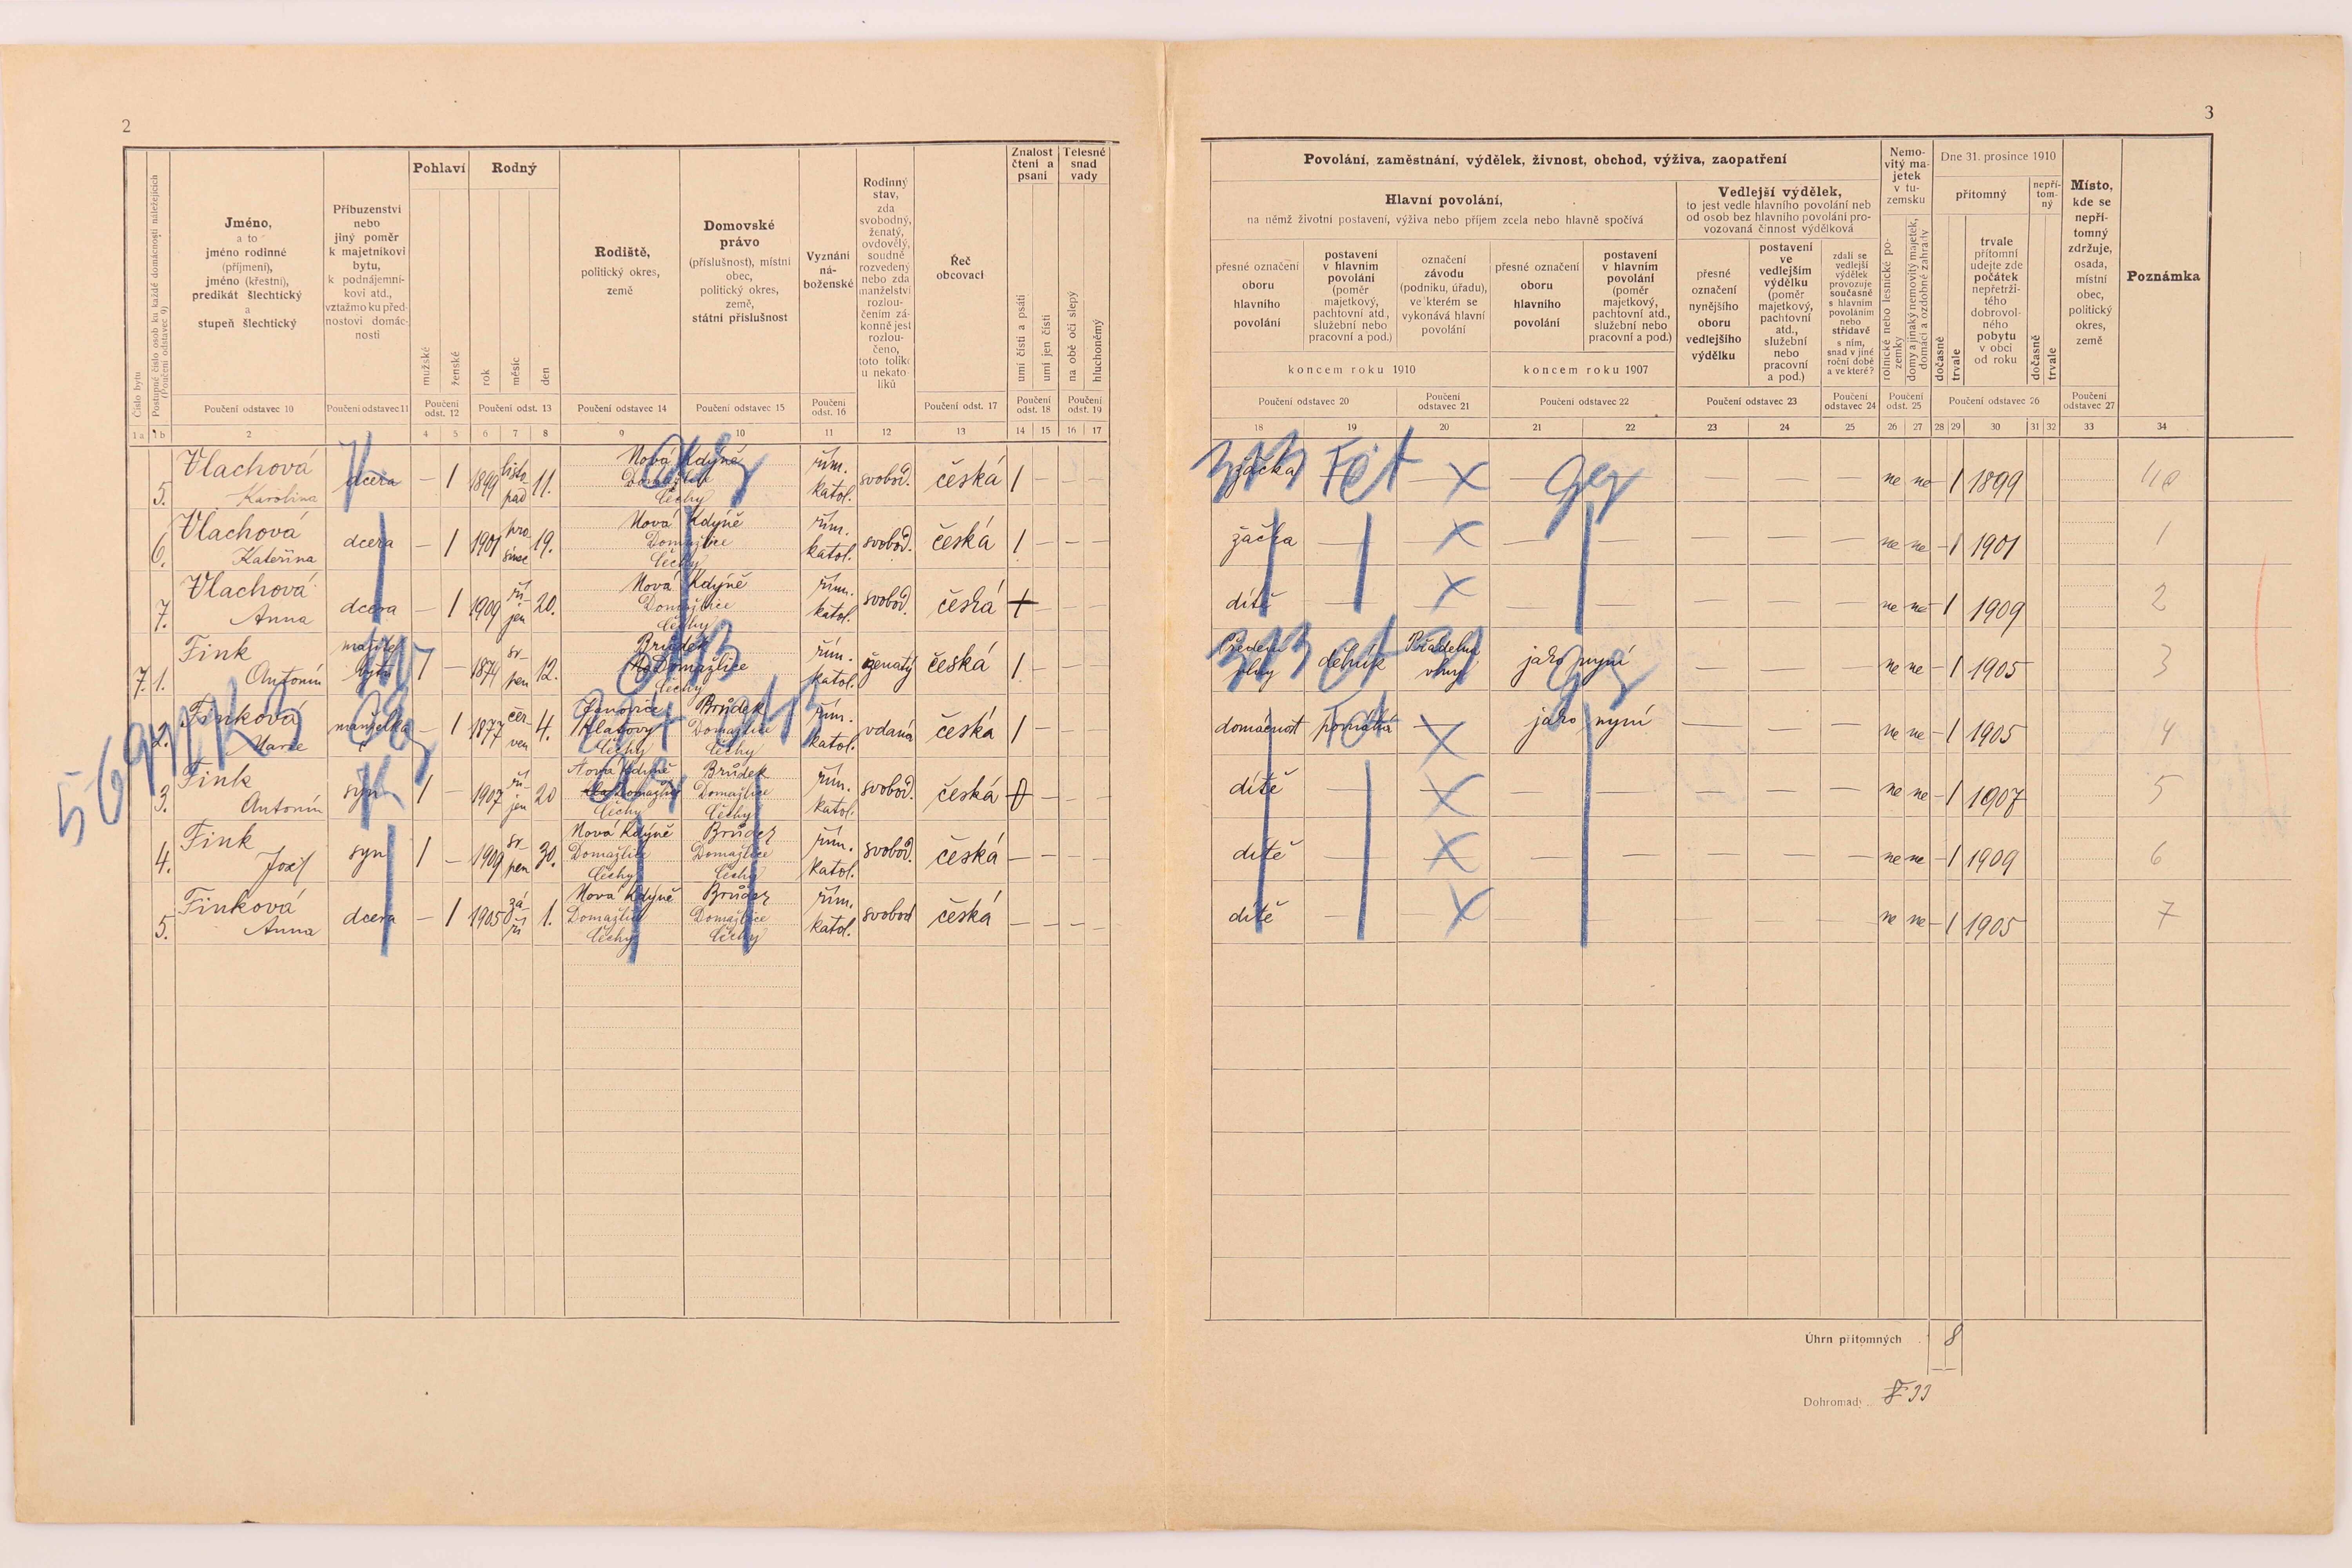 2
Pohlaví
Rodný
Znalost čtení a psaní
Tělesné snad vady
Číslo bytu
Postupné číslo osob ku každé domácnosti náležejících
(Poučení odstavec 9)
Jméno,
a to
jméno rodinné
(příjmení),
jméno (křestní),
predikát šlechtický
a
stupeň šlechtický
Příbuzenství
nebo
jiný poměr
k majetníkovi
bytu,
k podnájemní-
kovi atd.,
vztažmo ku před-
nostovi domác-
nosti
mužské
ženské
rok
měsíc
den
Rodiště,
politický okres,
země
Domovské
právo
(příslušnost), místní
obec,
politický okres,
země,
státní příslušnost
Vyznání
ná-
boženské
Rodinný
stav,
zda
svobodný,
ženatý,
ovdovělý,
soudně
rozvedený
nebo zda
manželství
rozlou-
čením zá-
konně jest
rozlou-
čeno,
toto toliko
u nekato-
líků
Řeč
obcovací
umí čísti a psáti
umí jen čísti
na obě oči slepý
hluchoněmý
Poučení odstavec 10
Poučení odstavec 11
Poučení odst. 12
Poučení odst. 13
Poučení odstavec 14
Poučení odstavec 15
Poučení odst. 16
Poučení odst. 17
Poučení odst. 18
Poučení odst. 19
1a 1b 2 4 5 6 7 8 9 10 11 12 13 14 15 16 17
5. Vlachová Karolina dcera — 1 1899 listo-pad 11. Nová Kdýně Domažlice Čechy řím. katol. svobod. česká 1 — — —
6. Vlachová Kateřina dcera — 1 1901 pro-sinec 19. Nová Kdýně Domažlice Čechy řím. katol. svobod. česká 1 — — —
7. Vlachová Anna dcera — 1 1909 ří-jen 20. Nová Kdýně Domažlice Čechy řím. katol. svobod. česká — — —
7. 1. Fink Antonín majitel bytu 1 — 1874 sr-pen 12. Brůdek Domažlice Čechy řím. katol. ženatý česká 1 — — —
2. Finková Marie manželka — 1 1877 čer-ven 4. Janovice Klatovy Čechy Brůdek Domažlice Čechy řím. katol. vdaná česká 1 — — —
3. Fink Antonín syn 1 — 1907 ří-jen 20 Nová Kdýně Domažlice Čechy Brůdek Domažlice Čechy řím. katol. svobod. česká 0 — — —
4. Fink Josef syn 1 — 1909 sr-pen 30. Nová Kdýně Domažlice Čechy Brůdek Domažlice Čechy řím. katol. svobod. česká — — — —
5. Finková Anna dcera — 1 1905 zá-ří 1. Nová Kdýně Domažlice Čechy Brůdek Domažlice Čechy řím. katol. svobod česká — — — —
3
Povolání, zaměstnání, výdělek, živnost, obchod, výživa, zaopatření
Hlavní povolání,
na němž životní postavení, výživa nebo příjem zcela nebo hlavně spočívá
Vedlejší výdělek,
to jest vedle hlavního povolání neb
od osob bez hlavního povolání pro-
vozovaná činnost výdělková
Nemo-
vitý ma-
jetek
v tu-
zemsku
Dne 31. prosince 1910
přítomný
nepří-
tom-
ný
Místo,
kde se
nepří-
tomný
zdržuje,
osada,
místní
obec,
politický
okres,
země
Poznámka
přesné označení
oboru
hlavního
povolání
postavení
v hlavním
povolání
(poměr
majetkový,
pachtovní atd.,
služební nebo
pracovní a pod.)
označení
závodu
(podniku, úřadu),
ve kterém se
vykonává hlavní
povolání
přesné označení
oboru
hlavního
povolání
postavení
v hlavním
povolání
(poměr
majetkový,
pachtovní atd.,
služební nebo
pracovní a pod.)
koncem roku 1910
koncem roku 1907
přesné
označení
nynějšího
oboru
vedlejšího
výdělku
postavení
ve
vedlejším
výdělku
(poměr
majetkový,
pachtovní
atd.,
služební
nebo
pracovní
a pod.)
zdali se
vedlejší
výdělek
provozuje
současně
s hlavním
povoláním
nebo
střídavě
s ním,
snad v jiné
roční době
a ve které?
rolnické nebo lesnické po-
zemky
domy a jinaký nemovitý majetek,
domácí a ozdobné zahrady
dočasně
trvale
trvale
přítomní
udejte zde
počátek
nepřetrži-
tého
dobrovol-
ného
pobytu
v obci
od roku
dočasně
trvale
Poučení odstavec 20
Poučení odstavec 21
Poučení odstavec 22
Poučení odstavec 23
Poučení odstavec 24
Poučení odst. 25
Poučení odstavec 26
Poučení odstavec 27
18 19 20 21 22 23 24 25 26 27 28 29 30 31 32 33 34
žačka — — — — — — — ne ne — 1 1899
žačka — — — — — — — ne ne — 1 1901 1
dítě — — — — — — — ne ne — 1 1909 2
dělník Přádelna vlny jako nyní — — — ne ne — 1 1905 3
domácnost pomáhá — jako nyní — — — ne ne — 1 1905 4
dítě — — — — — — — ne ne — 1 1907 5
dítě — — — — — — — ne ne — 1 1909 6
dítě — — — — — — — ne ne — 1 1905 7
Úhrn přítomných 8
Dohromady 33